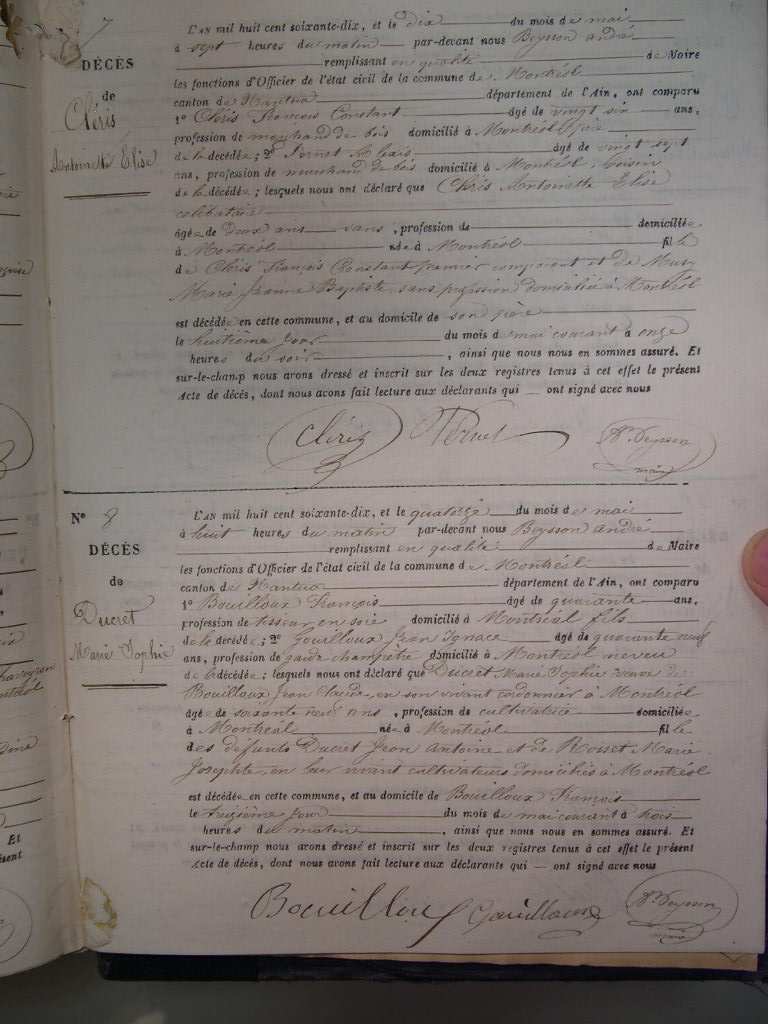 7
DÉCÈS
de
Cléris
Antoinette Elise
L'AN mil huit cent soixante-dix, et le dix du mois de mai
à sept heures du matin par-devant nous Beysson andré
remplissant en qualité de Maire
les fonctions d'Officier de l'état civil de la commune de Montréal
canton de Nantua département de l'Ain, ont comparu
1º Cléris François Constant âgé de vingt six ans,
profession de marchand de bois domicilié à Montréal père
de la décédée; 2º Alexis âgé de vingt sept
ans, profession de marchand de bois domicilié à Montréal, cousin
de la décédée; lesquels nous ont déclaré que Cléris Antoinette Elise
célibataire
âgée de deux ans sans, profession de domiciliée
à Montréal née à Montréal fille
de Cléris François Constant premier comparant et de
Marie Jeanne Baptiste, sans profession domiciliée à Montréal
est décédée en cette commune, et au domicile de son père
le huitième jour du mois de mai courant à onze
heures du soir, ainsi que nous nous en sommes assuré. Et
sur-le-champ nous avons dressé et inscrit sur les deux registres tenus à cet effet le présent
Acte de décès, dont nous avons fait lecture aux déclarants qui — ont signé avec nous
Cléris
Beysson
maire
Nº 8
DÉCÈS
de
Ducret
Marie Sophie
L'AN mil huit cent soixante-dix, et le quatorze du mois de mai
à huit heures du matin par-devant nous Beysson andré
remplissant en qualité de Maire
les fonctions d'Officier de l'état civil de la commune de Montréal
canton de Nantua département de l'Ain, ont comparu
1º Bouilloux François âgé de quarante ans,
profession de tisseur en soie domicilié à Montréal fils
de la décédée; 2º Gouilloux Jean Ignace âgé de quarante neuf
ans, profession de garde champêtre domicilié à Montréal neveu
de la décédée; lesquels nous ont déclaré que Ducret Marie Sophie veuve de
Bouilloux Jean Claude, en son vivant cordonnier à Montréal
âgée de soixante neuf ans, profession de cultivatrice domiciliée
à Montréal née à Montréal fille
des défunts Ducret Jean Antoine et de Rosset Marie
Josephte, en leur vivant cultivateurs domiciliés à Montréal
est décédée en cette commune, et au domicile de Bouilloux François
le treizième jour du mois de mai courant à trois
heures du matin, ainsi que nous nous en sommes assuré. Et
sur-le-champ nous avons dressé et inscrit sur les deux registres tenus à cet effet le présent
Acte de décès, dont nous avons fait lecture aux déclarants qui — ont signé avec nous
Bouilloux Gouilloux Beysson
maire